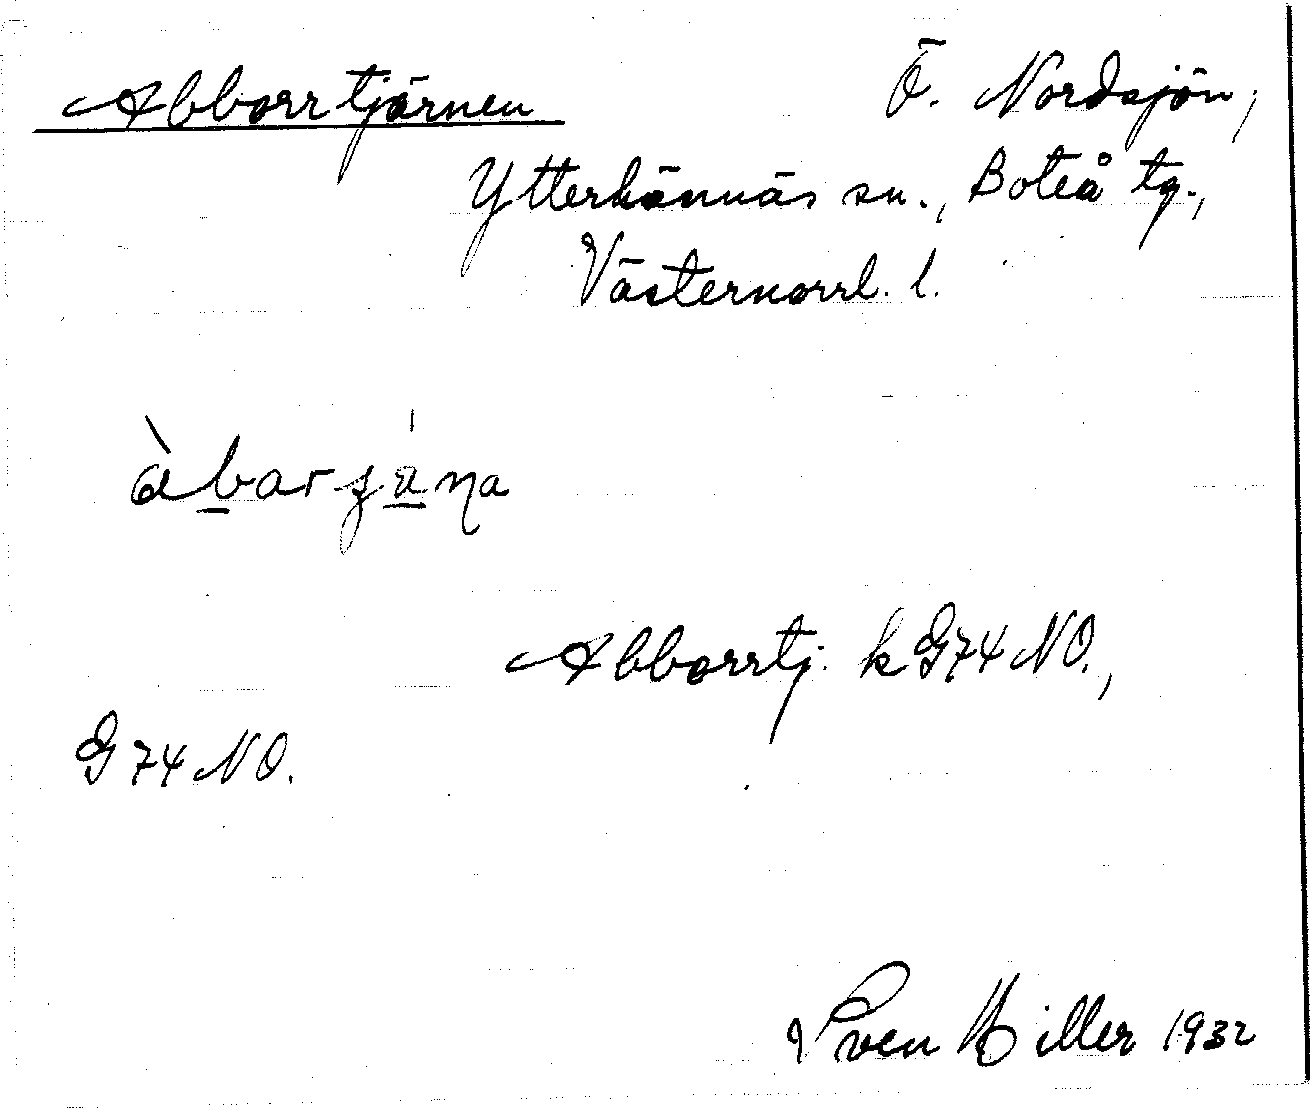 Abborrtjärnen Ö. Nordsjön,
Ytterlännäs sn., Boteå tg.,
Västernorrl. l.
àbarʂána
Abborrtj. k G74 NO.,
G 74 NO.
Sven Hiller 1932